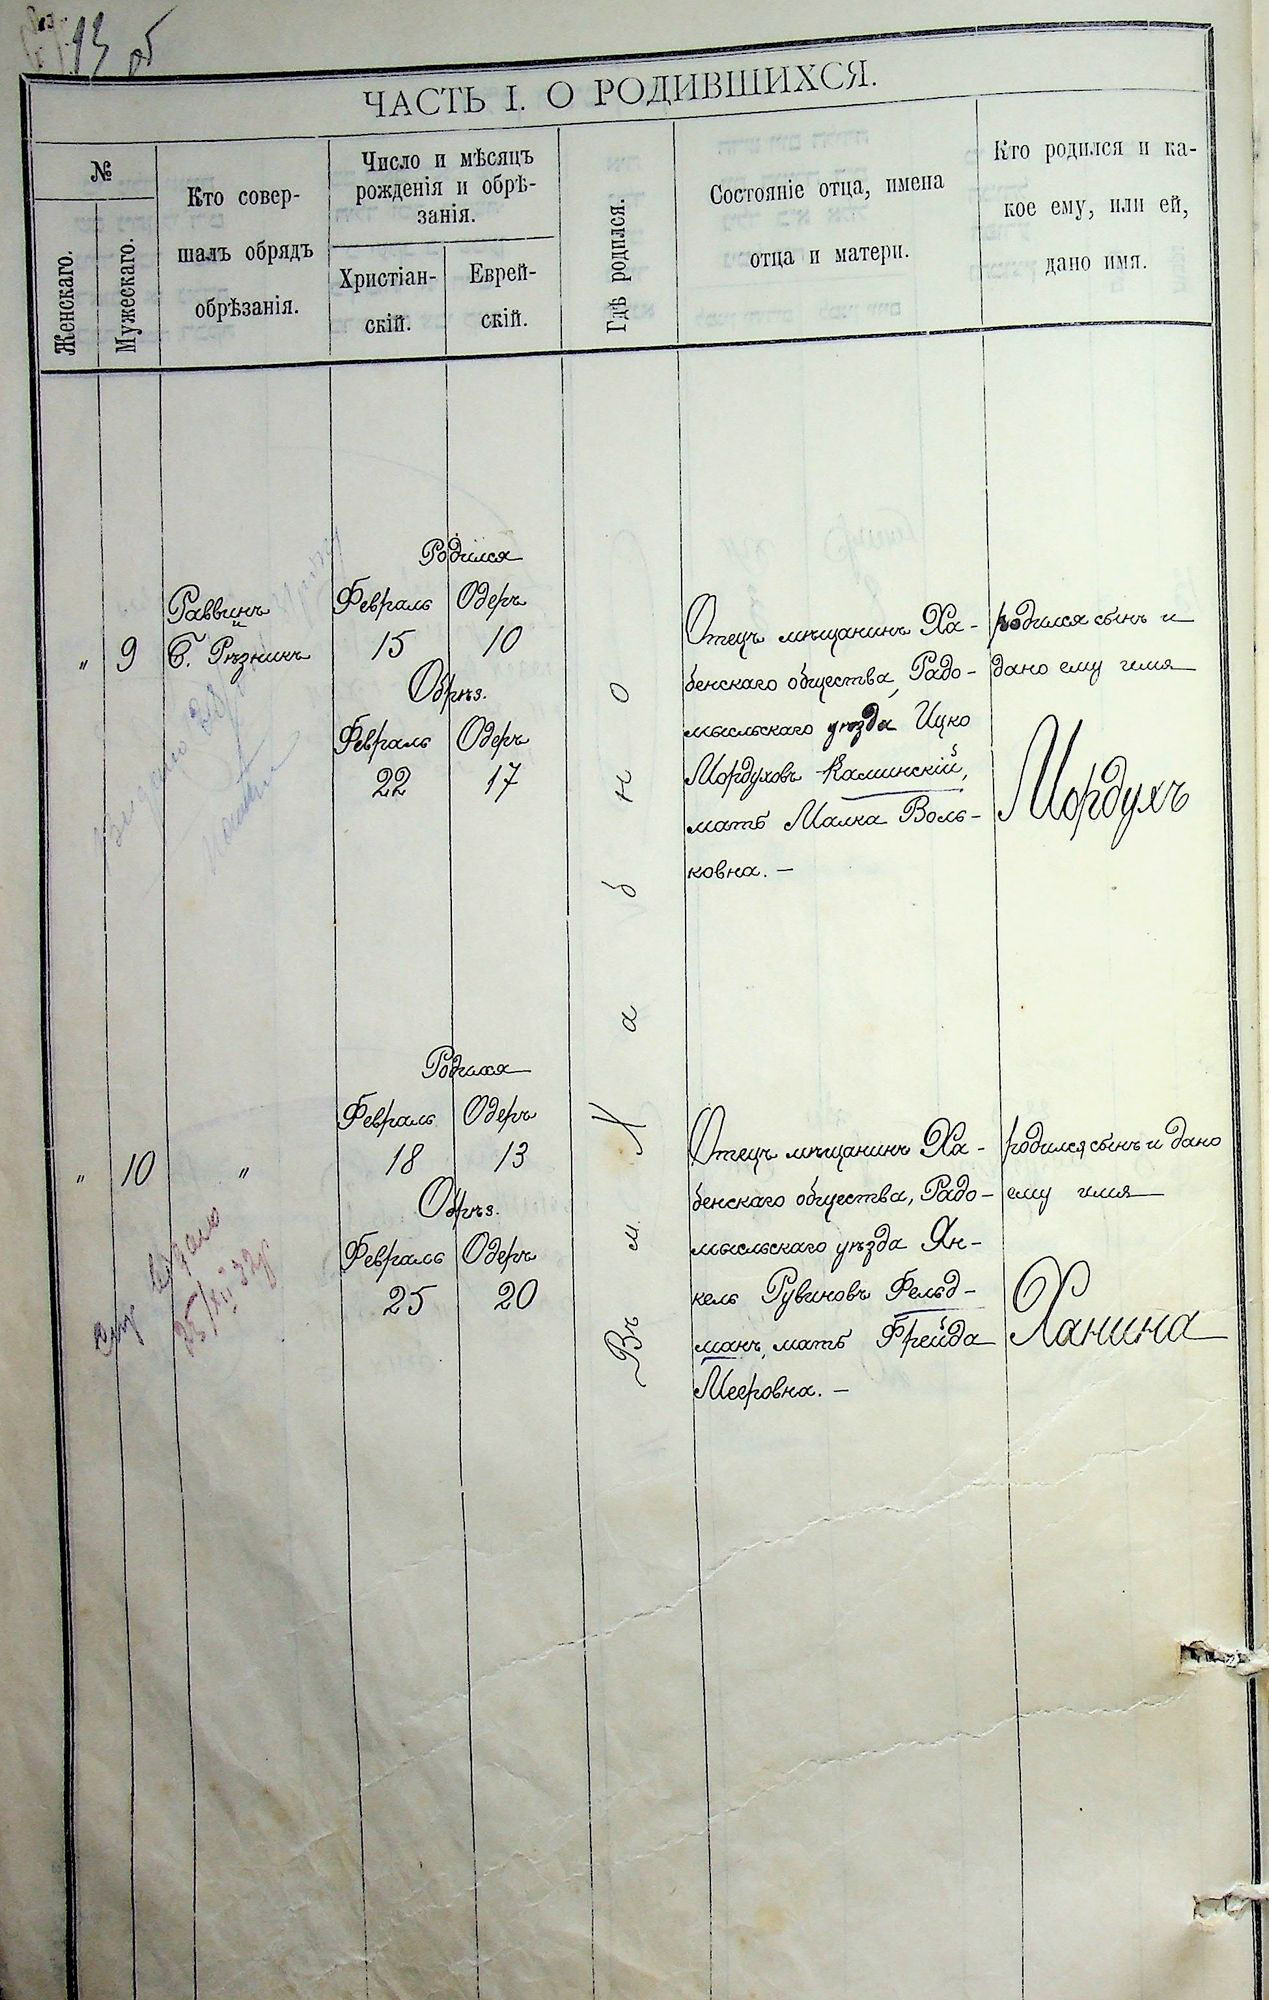 ЧАСТЬ I. О РОДИВШИХСЯ.
№
Женскаго.
Мужескаго.
Кто совер-
шалъ обрядъ
обрѣзанія.
Число и мѣсяцъ
рожденія и обрѣ-
занія.
Христіан-
скій.
Еврей-
скій.
Гдѣ родился.
Состояніе отца, имена
отца и матери.
Кто родился и ка-
кое ему, или ей,
дано имя.
"
9
Раввинъ
Б. Рѣзникъ
Родился
Февраль Одеръ
15 10
Обрѣз.
Февраль Одеръ
22 17
Отецъ мѣщанинъ Ха-
бенскаго общества, Радо-
мысльскаго уѣзда Ицко
Мордуховъ Калинскій,
мать Малка Воль-
ковна. —
родился сынъ и
дано ему имя
Мордухъ
"
10
"
Родился
Февраль Одеръ
18 13
Обрѣз.
Февраль Одеръ
25 20
Въ м. Хабно
Отецъ мѣщанинъ Ха-
бенскаго общества, Радо-
мысльскаго уѣзда Ян-
кель Рувиновъ Фельд-
манъ, мать Фрейда
Мееровна. —
родился сынъ и дано
ему имя
Ханина